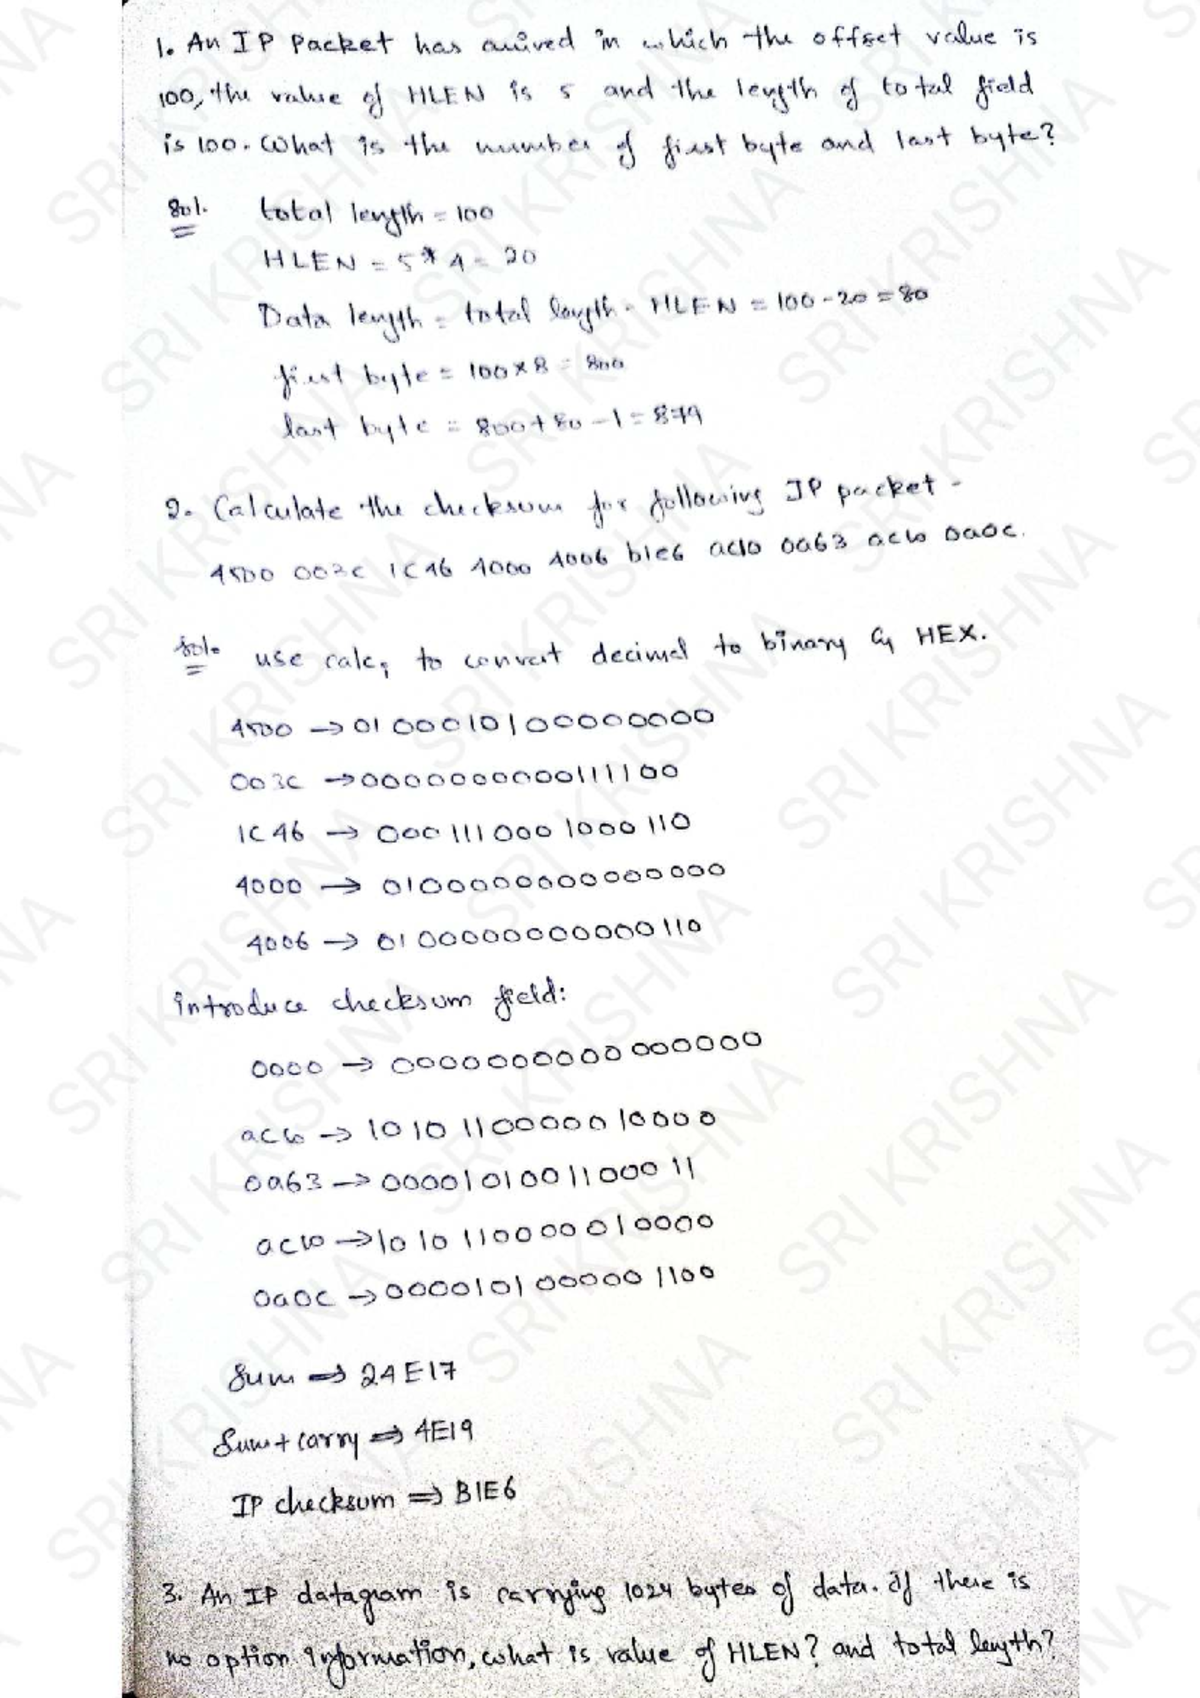 1. An IP Packet has arrived in which the offset value is
100, the value of HLEN is 5 and the length of total field
is 100. What is the number of first byte and last byte?
Sol. total length = 100
HLEN = 5 * 4 = 20
Data length = total length - HLEN = 100 - 20 = 80
first byte = 100 x 8 = 800
last byte = 800 + 80 - 1 = 879
2. Calculate the checksum for following IP packet -
4500 003c 1C46 4000 4006 b1e6 ac10 0a63 ac10 0a0c.
Sol. use calc, to convert decimal to binary & HEX.
4500 → 0100010100000000
003C → 0000000000111100
1C46 → 0001110001000110
4000 → 0100000000000000
4006 → 0100000000000110
introduce checksum field:
0000 → 0000000000000000
ac10 → 1010110000010000
0a63 → 0000101001100011
ac10 → 1010110000010000
0a0c → 0000101000001100
Sum ⇒ 24E17
Sum + carry ⇒ 4E19
IP checksum ⇒ B1E6
3. An IP datagram is carrying 1024 bytes of data. If there is
no option information, what is value of HLEN? and total length?
SRI KRISHNA